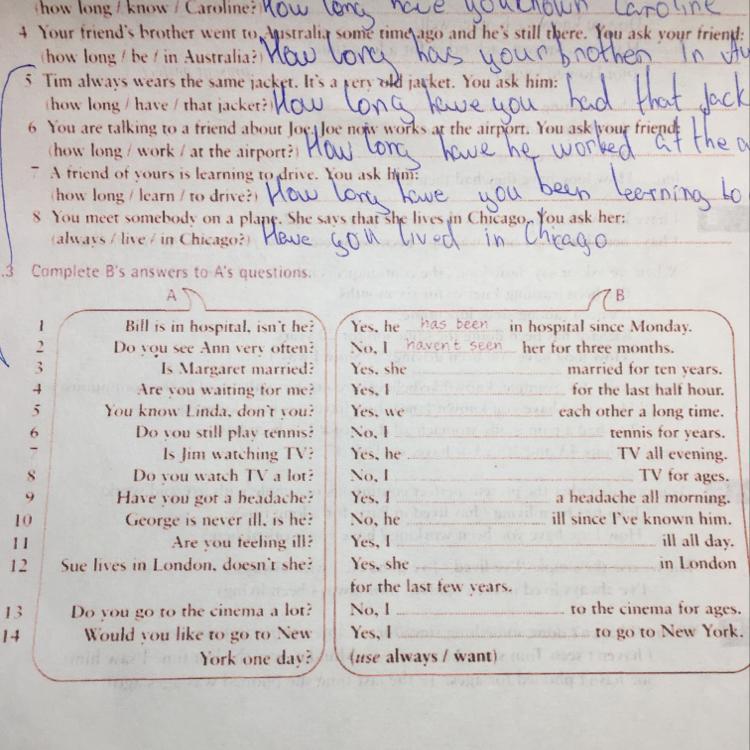 (how long / know / Caroline?) How long have you known Caroline
4 Your friend's brother went to Australia some time ago and he's still there. You ask your friend:
(how long / be / in Australia?) How long has your brother in Au
5 Tim always wears the same jacket. It's a very old jacket. You ask him:
(how long / have / that jacket?) How long have you had that Jack
6 You are talking to a friend about Joe. Joe now works at the airport. You ask your friend:
(how long / work / at the airport?) How long have he worked at the a
7 A friend of yours is learning to drive. You ask him:
(how long / learn / to drive?) How long have you been learning to
8 You meet somebody on a plane. She says that she lives in Chicago. You ask her:
(always / live / in Chicago?) Have you lived in Chicago
.3 Complete B's answers to A's questions.
A B
1 Bill is in hospital, isn't he? Yes, he has been in hospital since Monday.
2 Do you see Ann very often? No, I haven't seen her for three months.
3 Is Margaret married? Yes, she married for ten years.
4 Are you waiting for me? Yes, I for the last half hour.
5 You know Linda, don't you? Yes, we each other a long time.
6 Do you still play tennis? No, I tennis for years.
7 Is Jim watching TV? Yes, he TV all evening.
8 Do you watch TV a lot? No, I TV for ages.
9 Have you got a headache? Yes, I a headache all morning.
10 George is never ill, is he? No, he ill since I've known him.
11 Are you feeling ill? Yes, I ill all day.
12 Sue lives in London, doesn't she? Yes, she in London
for the last few years.
13 Do you go to the cinema a lot? No, I to the cinema for ages.
14 Would you like to go to New Yes, I to go to New York.
York one day? (use always / want)